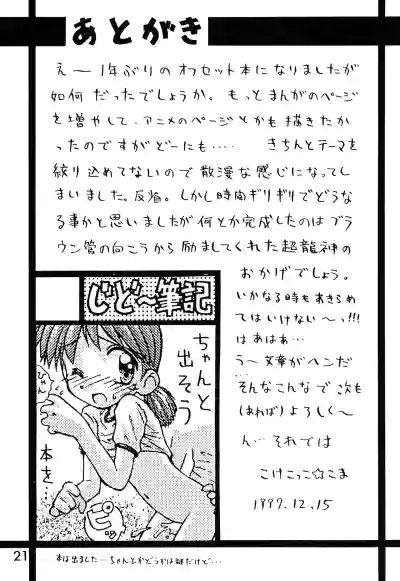 あとがき
えー1年ぶりのオフセット本になりましたが
如何だったでしょうか。もっとまんがのページ
を増やして、アニメのページとかも描きたか
ったのですがどーにも‥‥ きちんとテーマを
絞り込めてないので散漫な感じになってし
まいました。反省。しかし時間ギリギリでどうな
る事かと思いましたが何とか完成したのはブラ
ウン管の向こうから励ましてくれた超龍神の
おかげでしょう。
いかなる時もあきらめ
てはいけない〜っ!!!
はあはぁ…
う〜文章がヘンだ…
そんなこんなで次も
(あれば)よろしく〜
ん…それでは
こけこっこ☆こま
1997.12.15
じど〜筆記
ちゃんと
出そう
本を…
ピッ
21
本は出ました…ちゃんとかどうかは謎だけど…